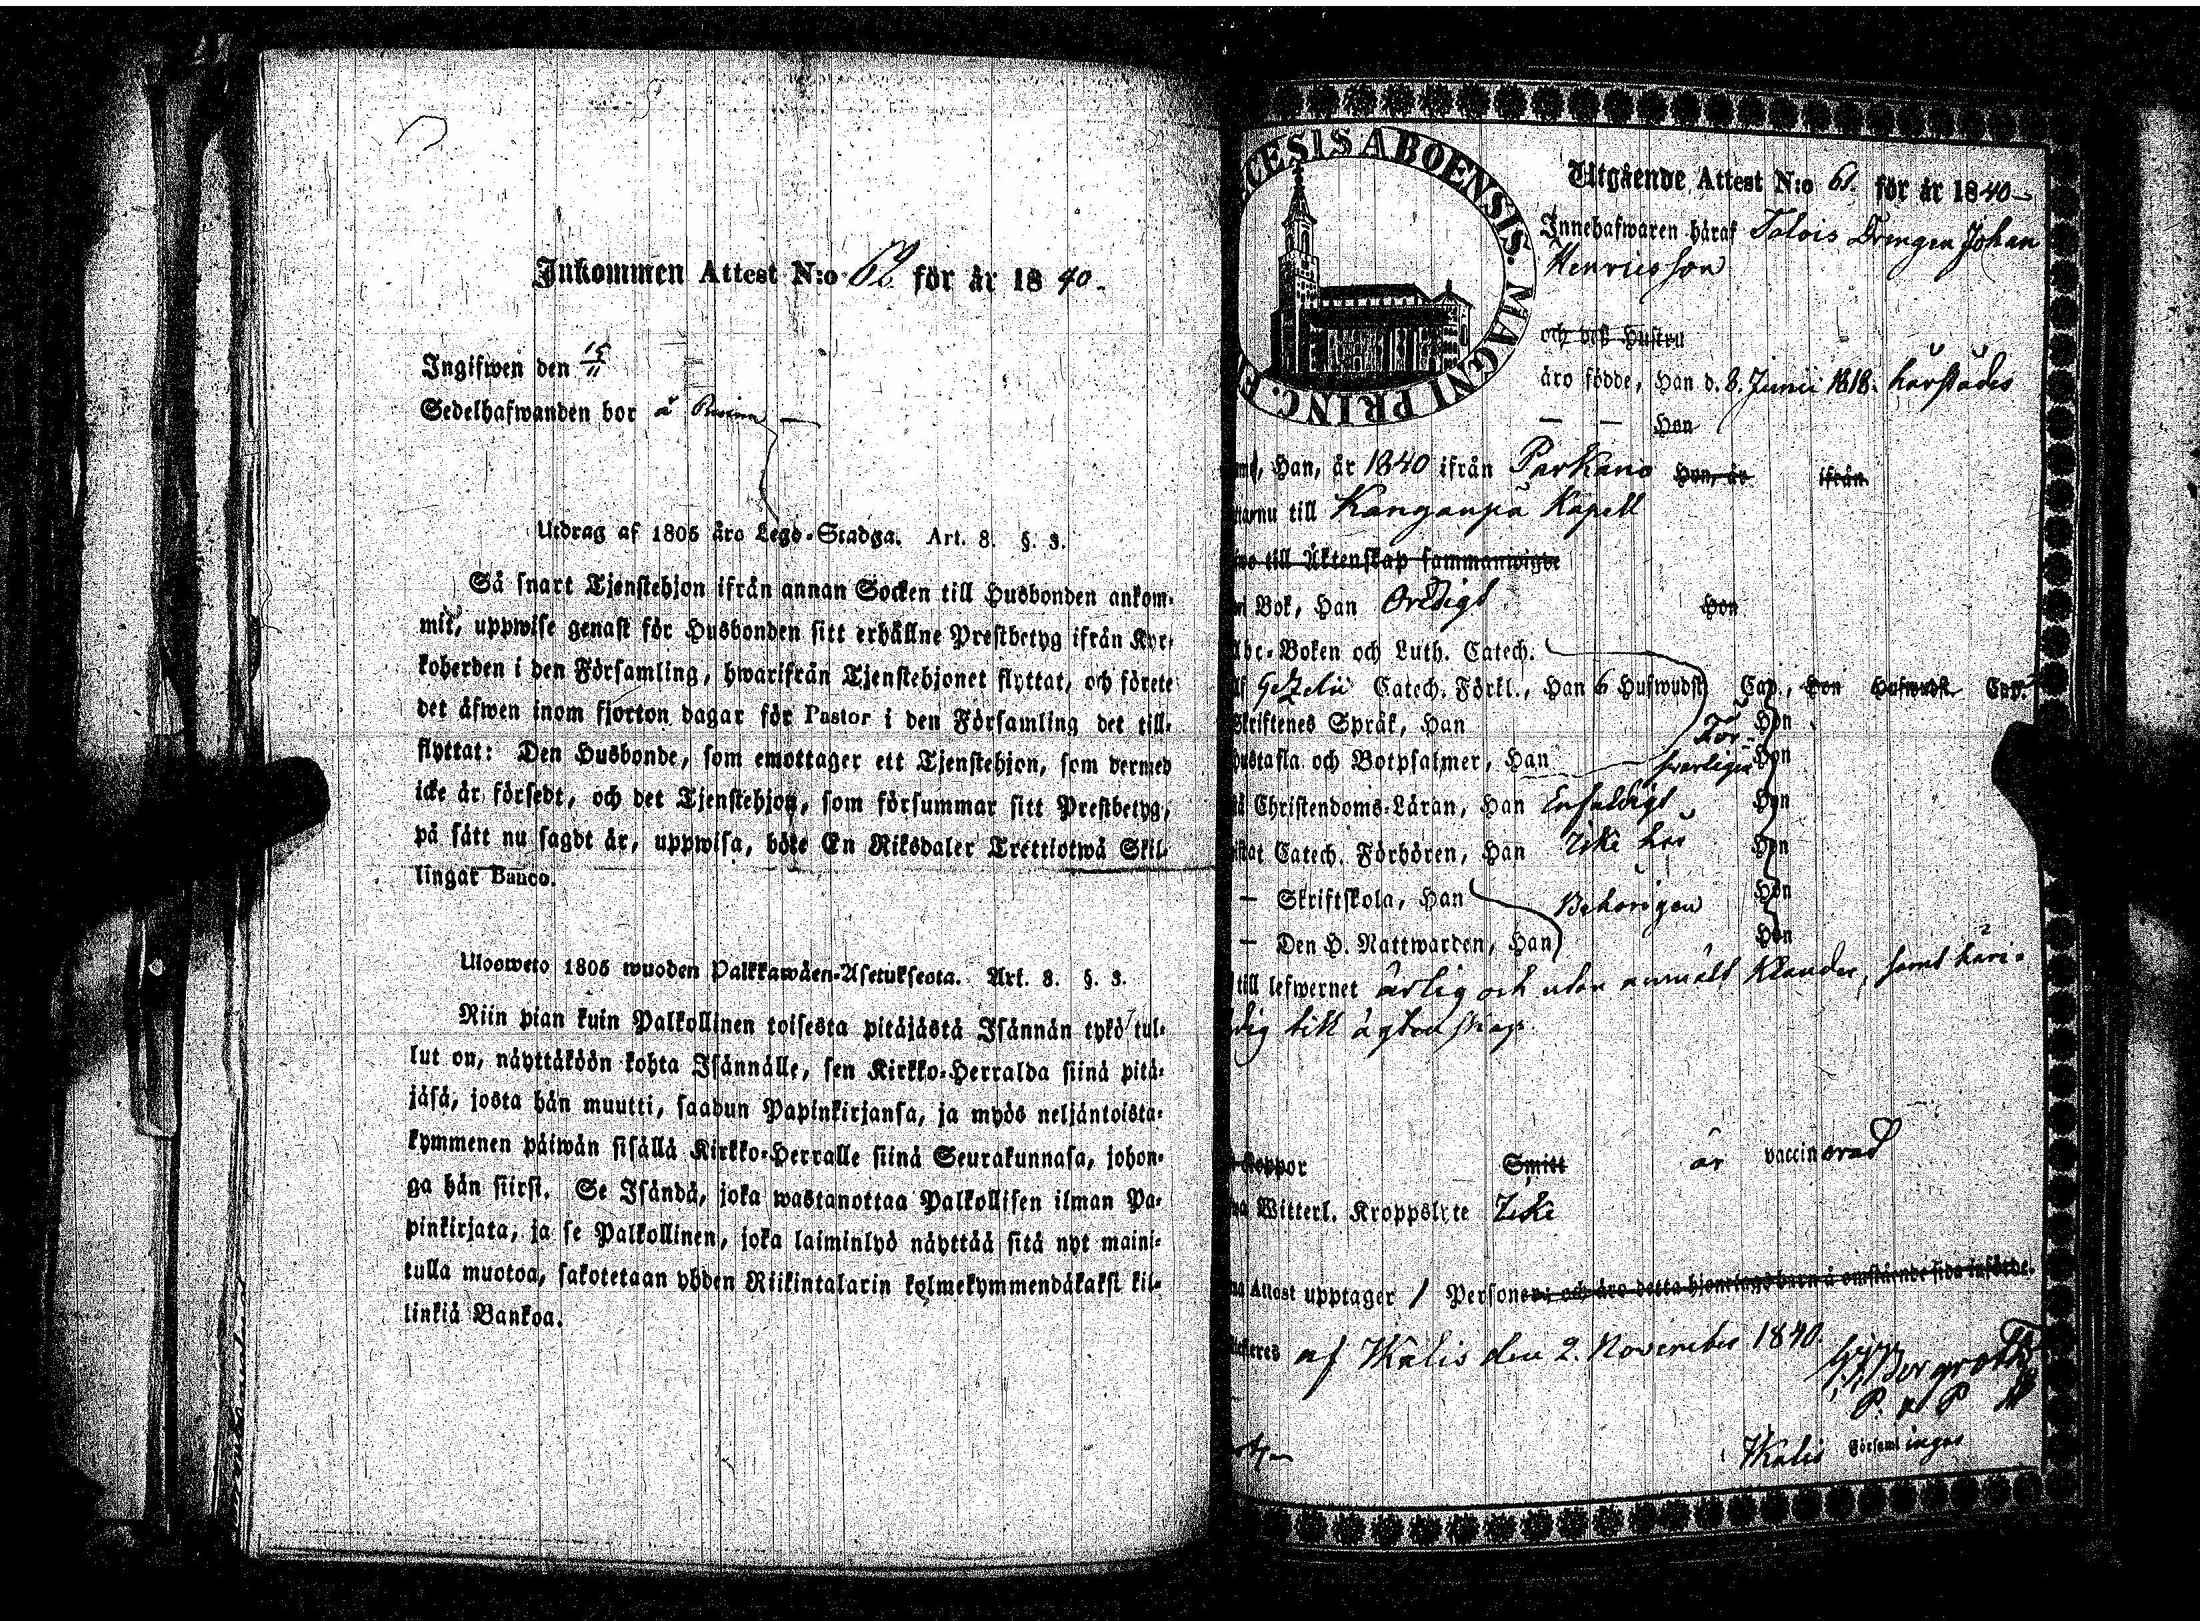 Inkommen Attest N:o 62 för år 1840.
Ingifwen den 15/11
Sedelhafwanden bor å
Utdrag af 1805 års Lego-Stadga. Art. 8. §. 3.
Så snart Tjenstehjon ifrån annan Socken till Husbonden ankom-
mit, uppwise genast för Husbonden sitt erhållne Prestbetyg ifrån Kyr-
koherden i den Församling, hwarifrån Tjenstehjonet flyttat, och förete
det äfwen inom fjorton dagar för Pastor i den Församling det till-
flyttat: Den Husbonde, som emottager ett Tjenstehjon, som dermed
icke är försedt, och det Tjenstehjon, som försummar sitt Prestbetyg,
på sätt nu sagdt är, uppwisa, böte En Riksdaler Trettiotwå Skil-
lingar Banco.
Ulosweto 1805 wuoden Palkkawäen-Asetuksesta. Art. 8. §. 3.
Niin pian kuin Palkollinen toisesta pitäjästä Isännän tykö tul-
lut on, näyttäköön kohta Isännälle, sen Kirkko-Herralda siinä pitä-
jäsä, josta hän muutti, saadun Papinkirjansa, ja myös neljäntoista-
kymmenen päiwän sisällä Kirkko-Herralle siinä Seurakunnasa, johon-
ga hän siirsi. Se Isändä, joka wastanottaa Palkollisen ilman Pa-
pinkirjata, ja se Palkollinen, joka laiminlyö näyttää sitä nyt maini-
tulla muotoa, sakotetaan yhden Riikintalarin kolmekymmendäkaksi kil-
linkiä Bankoa.
CESIS ABOENSIS. MAGNI PRINC. F
Utgående Attest N:o 61. för år 1840
Innehafwaren häraf Drengen Johan
Henricsson
och dess Hustru
äro födde, Han d. 8. Junii 1818. härstädes
— — Hon
Han, år 1840 ifrån Parkano Hon, år ifrån
till Kangaspä Kapell
till Äktenskap sammanwigde
Bok, Han Hon
Abc-Boken och Luth. Catech.
Af Gezelii Catech. Förkl., Han 6 Hufwudst. Cap., Hon Hufwudst. Cap.
Skriftenes Språk, Han Hon
Hustafla och Botpsalmer, Han Hon
Christendoms-Läran, Han Enfaldigt Hon
Catech. Förhören, Han Icke här Hon
— Skriftskola, Han Behörigen Hon
— Den H. Nattwarden, Han Hon
till lefwernet ärlig och utan anmält klander, samt
dig till ägtenskap.
koppor Smitt är vaccinerad
Witterl. Kroppslyte Icke
Attest upptager 1 Personer; och äro detta hjonelags barn å omstående sida införde.
af Ikalis den 2. November 1840.
Bergroth
Ikalis Församlingas